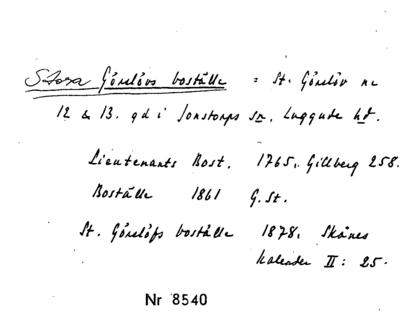 Stora Görslövs boställe = St. Görslöv nr
12 & 13. gd i Jonstorps sn, Luggude hd.
Lieutenants Bost. 1765. Gillberg 258.
Boställe 1861 G. St.
St. Görslöfs boställe 1878. Skånes
kalender II: 25.
Nr 8540